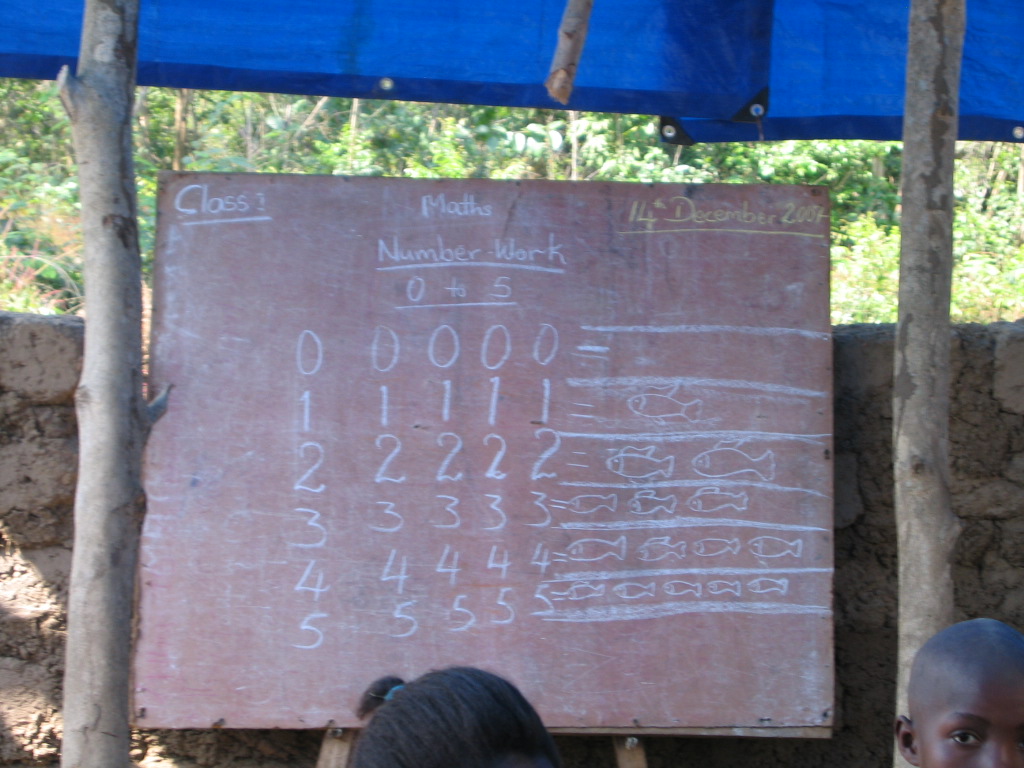 Class 1 Maths 14th December 2007
Number Work
0 to 5
0 0 0 0 0 =
1 1 1 1 1 =
2 2 2 2 2 =
3 3 3 3 3 =
4 4 4 4 4 =
5 5 5 5 5 =